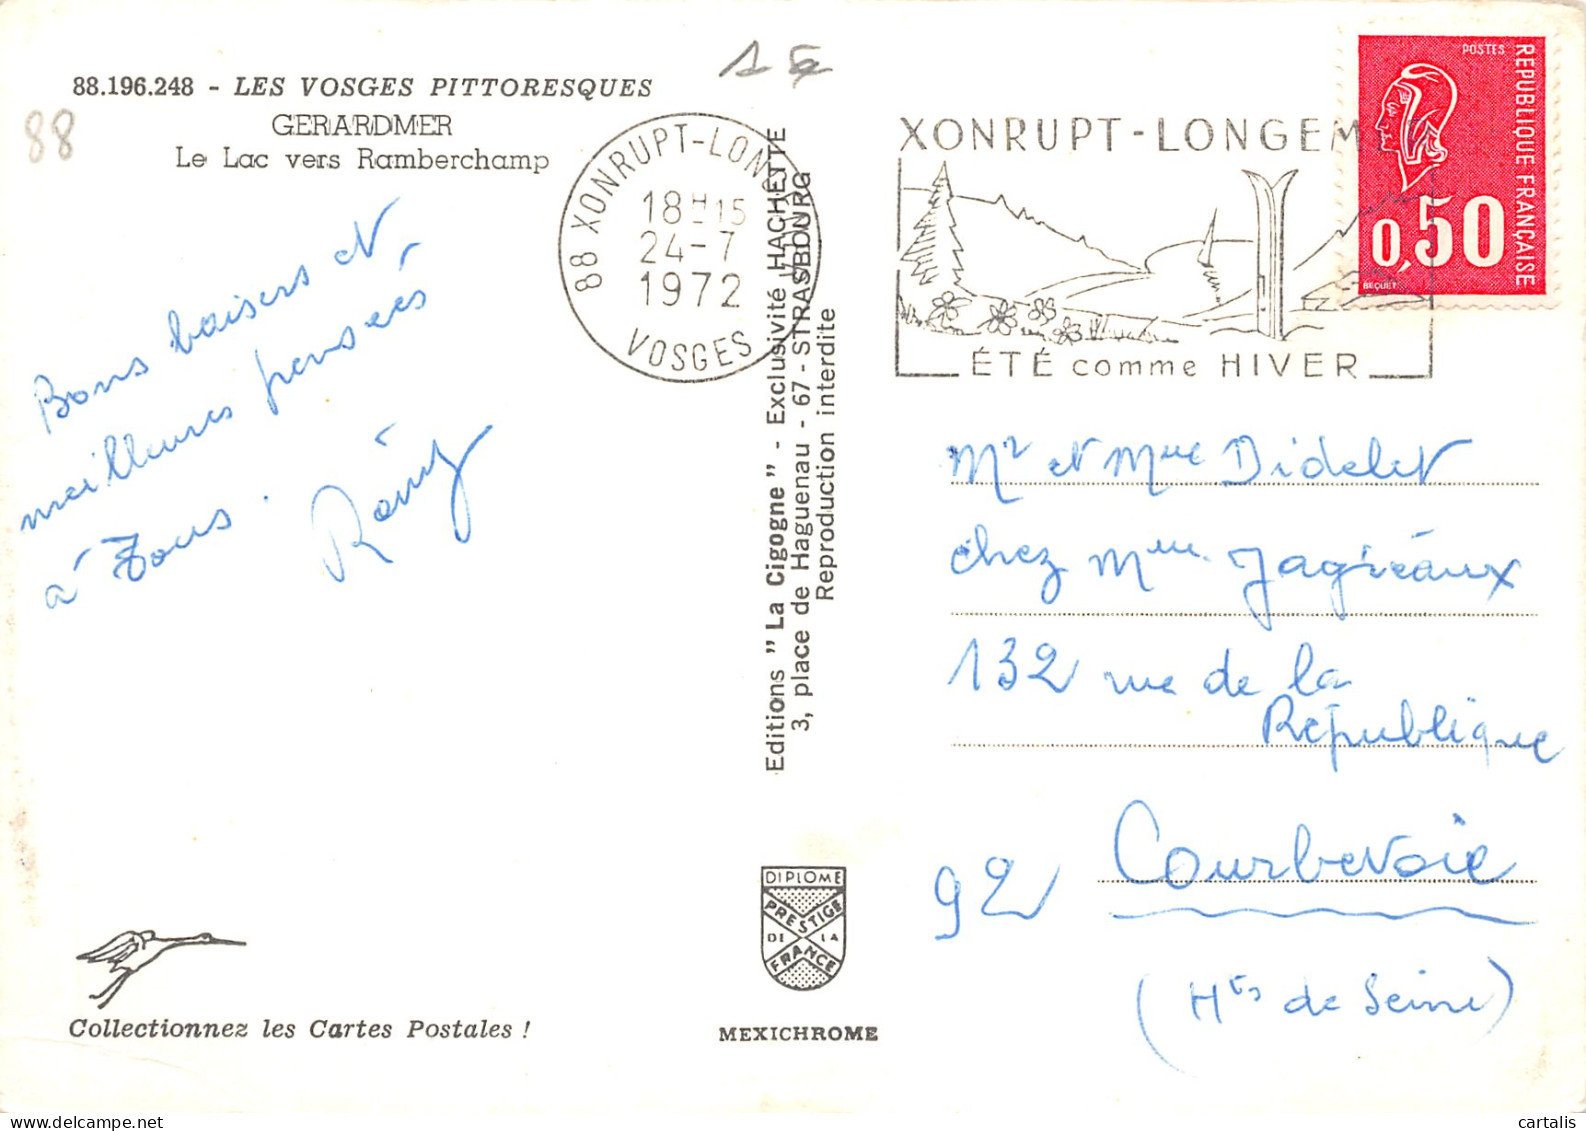 88.196.248 - LES VOSGES PITTORESQUES
GERARDMER
Le Lac vers Ramberchamp
88
Bons baisers et
meilleures pensées
à Tous.
Rémy
88 XONRUPT-LON
18H15
24-7
1972
VOSGES
XONRUPT-LONGEM
ÉTÉ comme HIVER
POSTES
REPUBLIQUE FRANÇAISE
0,50
BEQUET
Editions "La Cigogne" - Exclusivité HACHETTE
3, place de Haguenau - 67 - STRASBOURG
Reproduction interdite
Mr et Mme Didelet
chez Mme Jagréaux
132 rue de la
République
92 Courbevoie
(Hts de Seine)
DIPLOME
PRESTIGE
DE LA
FRANCE
MEXICHROME
Collectionnez les Cartes Postales !
cartalis